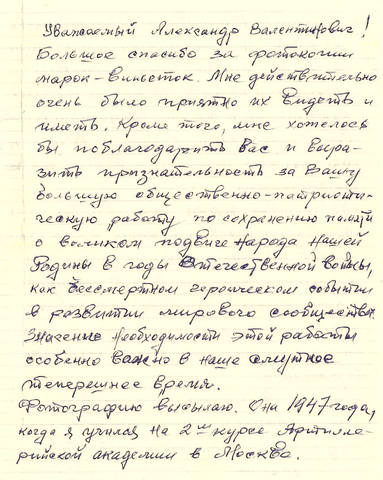 Уважаемый Александр Валентинович!
Большое спасибо за фотокопии
марок-виньеток. Мне действительно
очень было приятно их видеть и
иметь. Кроме того, мне хотелось
бы поблагодарить Вас и выра-
зить признательность за Вашу
большую общественно-патриоти-
ческую работу по сохранению памяти
о великом подвиге народа нашей
Родины в годы Отечественной войны,
как бессмертном героическом событии
в развитии мирового сообщества.
Значение необходимости этой работы
особенно важно в наше смутное
теперешнее время.
Фотографию высылаю. Она 1947 года,
когда я учился на 2м курсе Артилле-
рийской академии в Москве.